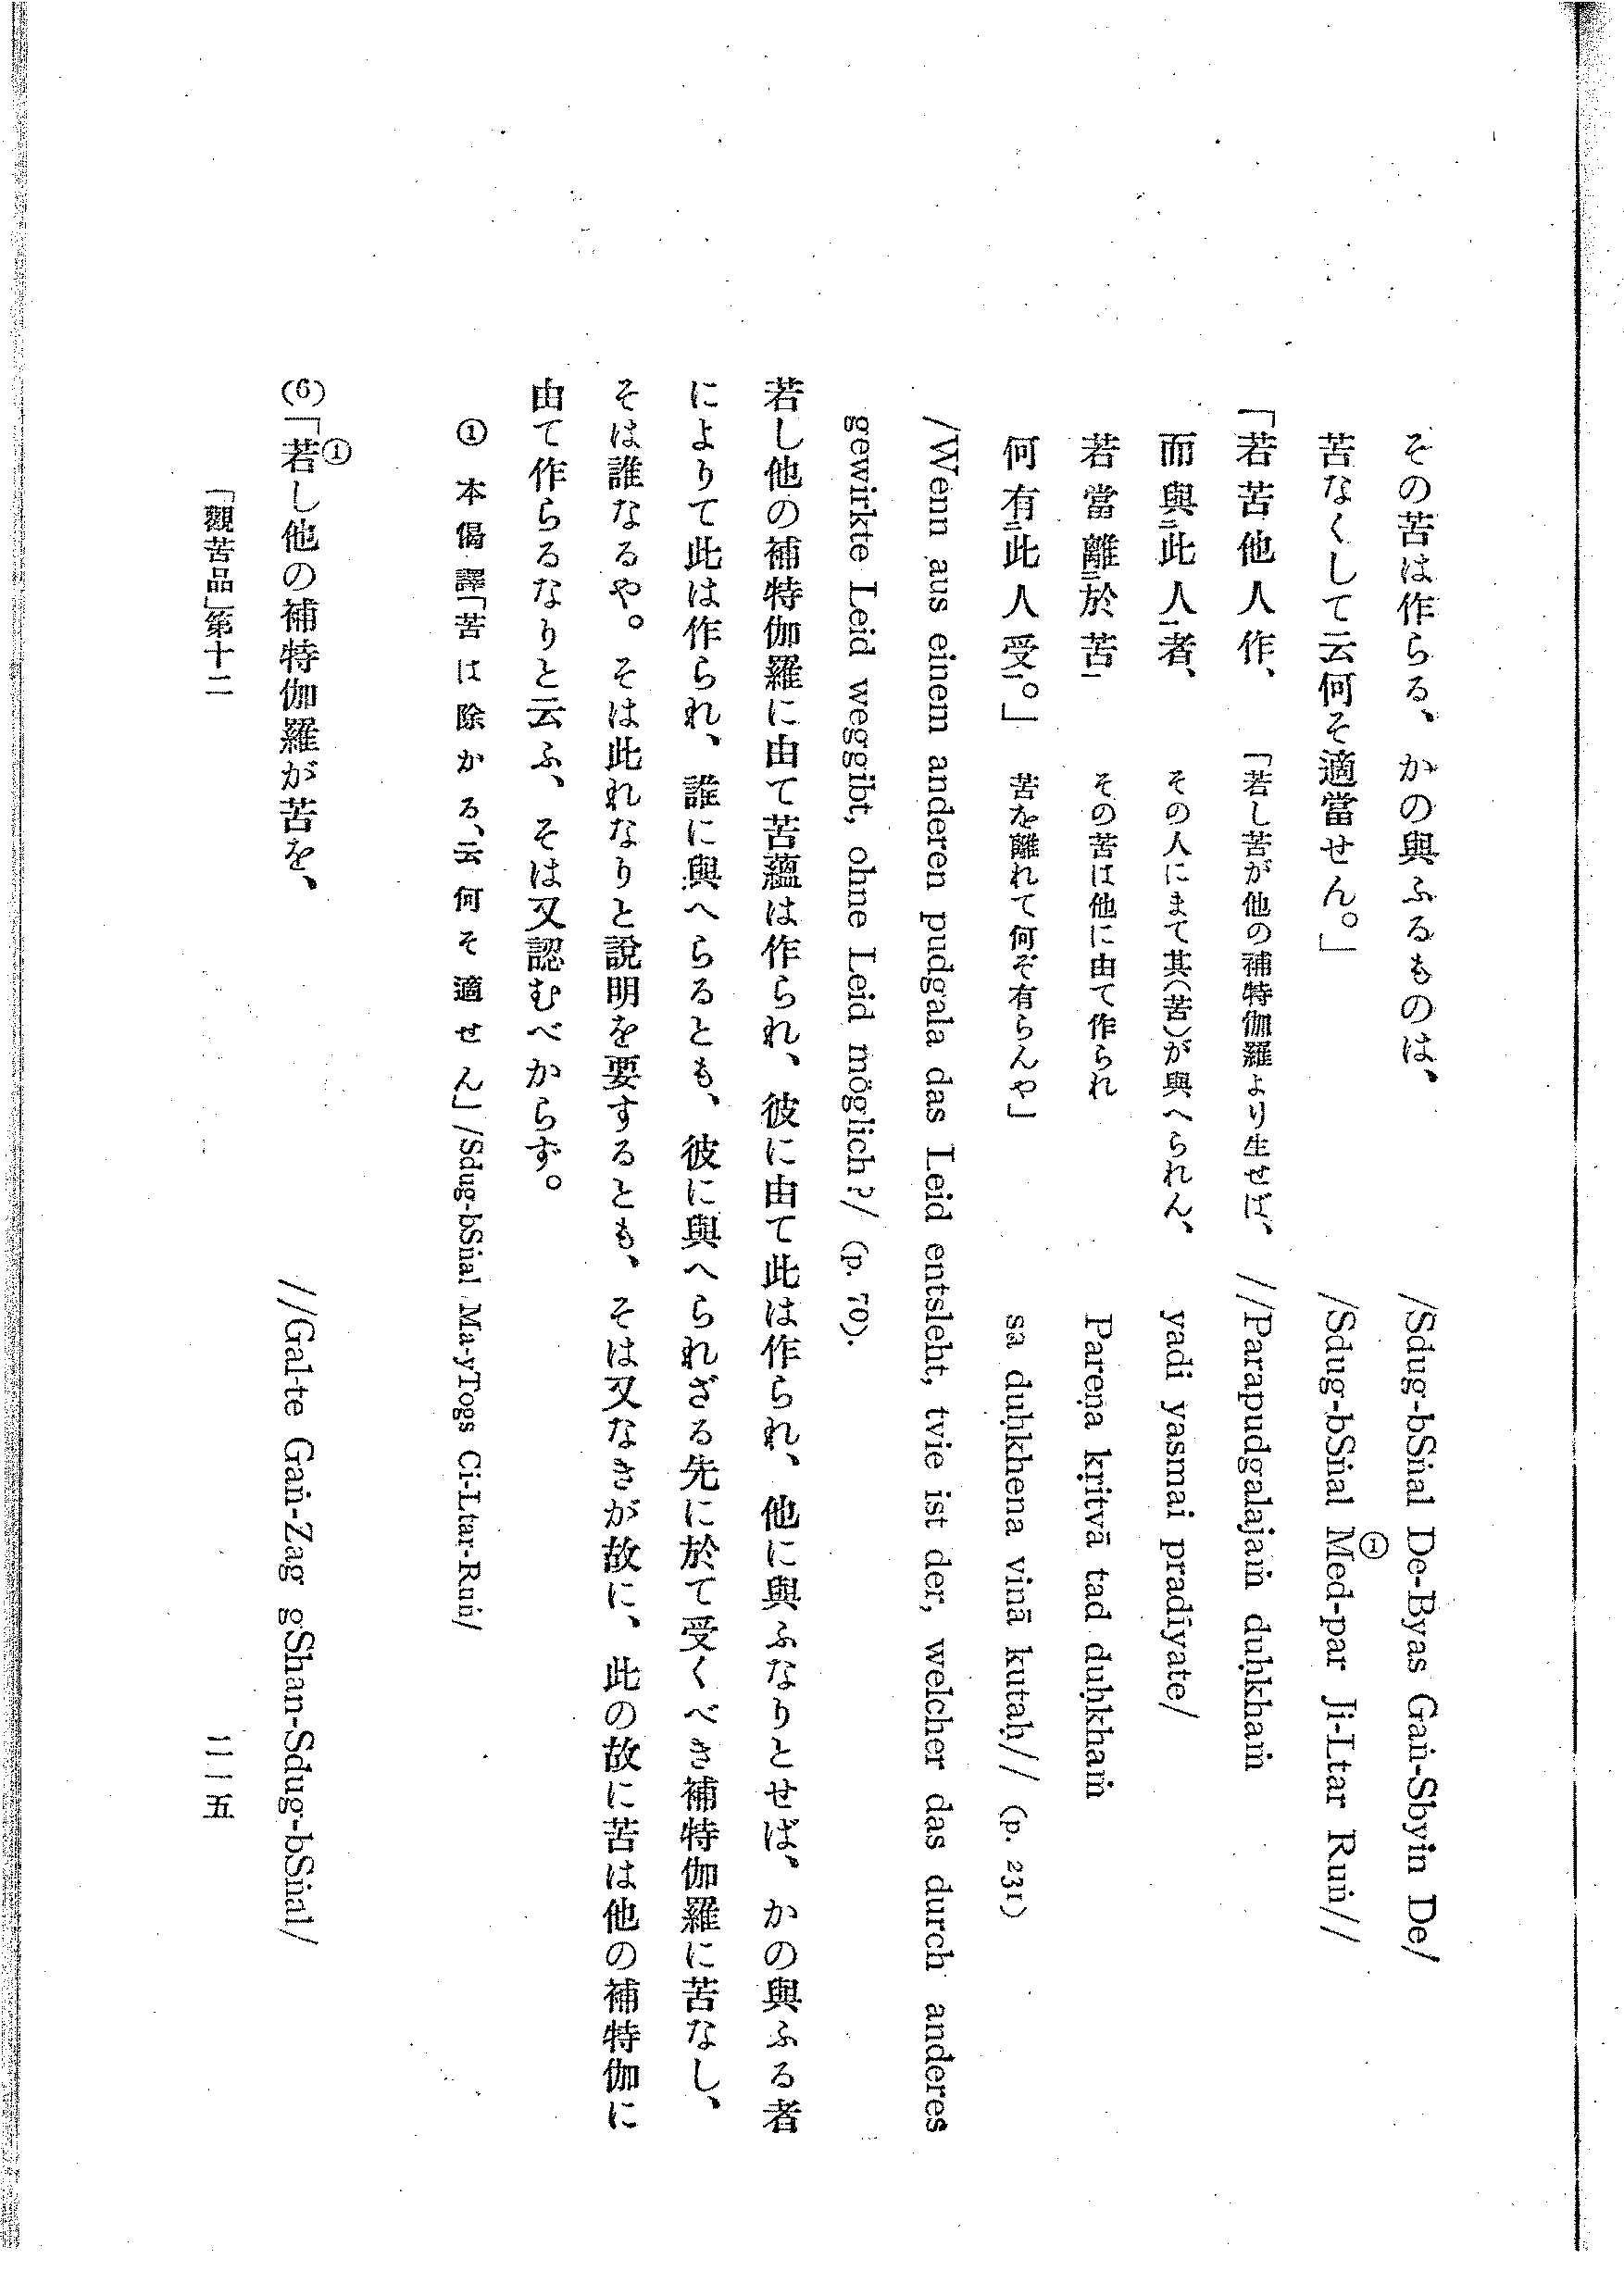 その苦は作らる、かの與ふるものは、 /Sdug-bSṅal De-Byas Gaṅ-Sbyin De/
苦なくして云何そ適當せん。」 /Sdug-bSṅal Med-par①Ji-Ltar Ruṅ//
「若苦他人作、 「若し苦が他の補特伽羅より生せば、 //Parapudgalajaṁ duḥkhaṁ
而與二此人一者、 その人にまて其(苦)が與へられん、 yadi yasmai pradīyate/
若當離二於苦一 その苦は他に由て作られ Pareṇa kṛitvā tad duḥkhaṁ
何有二此人受一。」 苦を離れて何ぞ有らんや」 sa duḥkhena vinā kutaḥ// (p. 231)
/Wenn aus einem anderen pudgala das Leid entsleht, tvie ist der, welcher das durch anderes
gewirkte Leid weggibt, ohne Leid möglich?/ (p. 70).
若し他の補特伽羅に由て苦蘊は作られ、彼に由て此は作られ、他に與ふなりとせば、かの與ふる者
によりて此は作られ、誰に與へらるとも、彼に與へられざる先に於て受くべき補特伽羅に苦なし、
そは誰なるや。そは此れなりと說明を要するとも、そは又なきが故に、此の故に苦は他の補特伽に
由て作らるなりと云ふ、そは又認むべからず。
① 本偈譯「苦は除かる、云何そ適せん」/Sdug-bSṅal Ma-yTogs Ci-Ltar-Ruṅ/
(6)「①若し他の補特伽羅が苦を、 //Gal-te Gaṅ-Zag gShan-Sdug-bSṅal/
「觀苦品」第十二 二一五